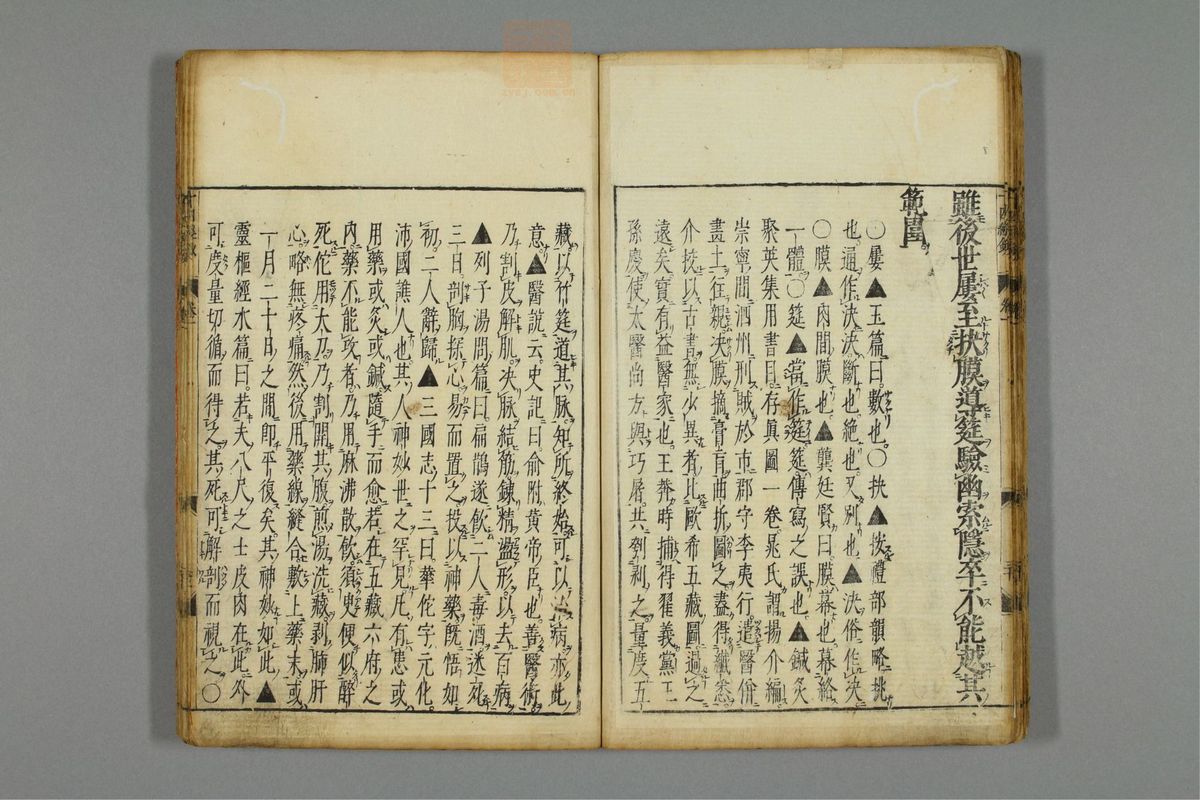 雖後世屢至抉膜道筵驗幽索隱卒不能越其
範圍
○屢▲玉篇曰數也○抉▲按禮部韻略挑
也通作決決斷也絶也又別也▲決俗作决
○膜▲肉間膜也▲龔廷賢曰膜幕也幕絡
一體○筵▲當作筳筵傳寫之誤也▲鍼灸
聚英集用書目存眞圖一卷晁氏謂揚介編
崇寧間泗州刑賊於市郡守李夷行遣醫併
畫土往親決膜摘膏肓曲折圖之盡得纖悉
介挍以古書無少異者比歐希五藏圖過之
遠矣實有益醫家也王莽時捕得翟義黨王
孫慶使太醫尚方與巧屠共刳剥之量度五
藏以竹筳道其脉知所終始可以 病亦此
意▲醫說云史記曰俞附黃帝臣也善醫術
乃割皮解肌決脉結筋鍊精 形以去百病
▲列子湯問篇曰扁鵲遂飲二人毒酒迷死
三日剖胸探心易而置之投以神藥旣悟如
初二人辭歸▲三國志十三曰華佗字元化
沛國譙人也其人神妙世之罕見凡有患或
用藥或灸或鍼隨手而愈若在五藏六府之
內藥不能攻者乃用麻沸散飲須臾便似醉
死佗用太刀乃割開其腹煎湯洗藏剥肺肝
心略無疼痛然後用藥線縫合數上藥末或
一月二十日之間卽平復矣其神妙如此▲
靈樞經水篇曰若夫八尺之士皮肉在此外
可度量切循而得之其死可解剖而視之○
zysj.com.cn